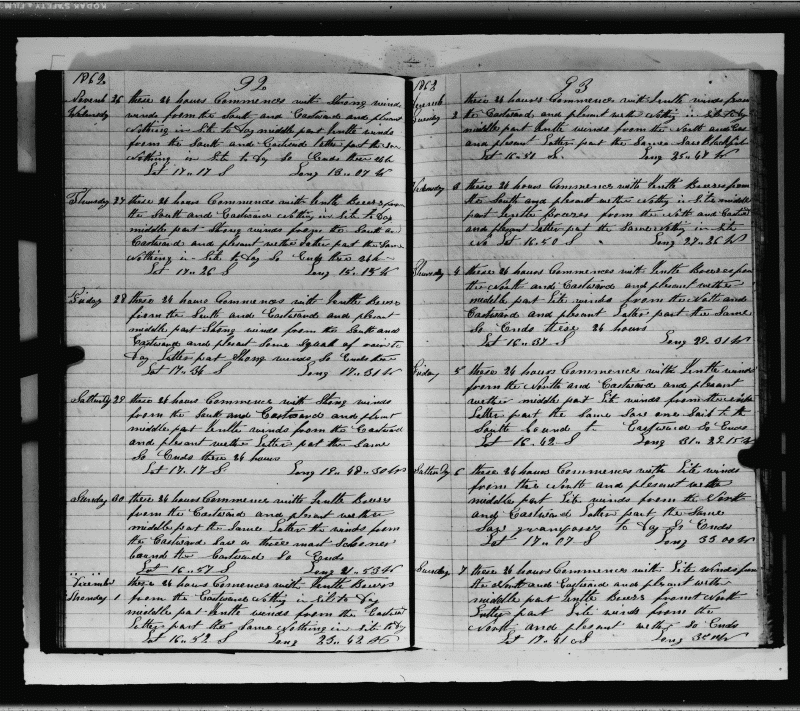 KODAK SAFETY FILM
1862
92
Novemb 26 these 24 hours Commences with Strong winds
Wednesday winds from the South and Eastward and plesent
Nothing in Site to Day middle part Gentle winds
from the South and Eastward latter part the Same
Nothing in Site to Day So Ends these 24h
Lat 17 " 17 S Long 13 " 07 W
Thursday 27 these 24 hours Commences with Gentle Breezes from
the South and Eastward Nothing in Site to Day
middle part Strong winds from the South an
Eastward and plesent wether latter part the Same
Nothing in Site to Day So Ends these 24h
Lat 17 " 26 S Long 15 " 15 W
Friday 28 these 24 hours Commences with Gentle Breezes
from the South and Eastward and plesent
middle part Strong winds from the South and
Eastward and plesent Some Squak of rain to
Day Latter part Strong winds So Ends these
Lat 17 " 36 S Long 17 " 31 W
Satterday 29 these 24 hours Commences with Strong winds
from the South and Eastward and plesent
middle part Gentle winds from the Eastward
and plesent wether Latter part the Same
So Ends these 24 hours
Lat 17 " 17 S Long 19 " 48 " 30 W
Sunday 30 these 24 hours Commence with Gentle Breezes
from the Eastward and plesent wether
middle part the Same Latter the winds from
the Eastward Saw a three mast Schooner
bound the Eastward So Ends
Lat 16 " 57 S Long 21 " 53 W
December these 24 hours Comences with Gentle Breezes
Monday 1 from the Eastward Nothing in Site to Day
middle part Gentle winds from the Eastward
Latter part the Same Nothing in Site to Day
Lat 16 " 52 S Long 23 " 42 W
1862
93
these 24 hours Commences with Gentle winds from
Tuesday 2 the Eastward and plesent wether Nothing in Site to Day
middle part Gentle winds from the North and East
and plesent Latter part the Same Saw Blackfish
Lat 16 " 51 S Long 25 " 47 W
Wednesday 3 these 24 hours Commences with Gentle Breezes from
the South and plesent wether Nothing in Site middle
part Gentle Breezes from the North and Eastward
and plesent Latter part the Same Nothing in Site
Lat 16 " 50 S Long 27 " 26 W
Thursday 4 these 24 hours Commences with Gentle Breezes from
the North and Eastward and plesent wether
middle part Lite winds from the North and
Eastward and plesent Latter part the Same
So Ends these 24 hours
Lat 16 " 37 S Long 29 " 31 W
Friday 5 these 24 hours Commences with Gentle winds
from the North and Eastward and plesent
wether middle part Lite winds from the
Latter part the Same Saw one Sail to the
South bound to Eastward So Ends
Lat 16 " 42 S Long 31 " 22 " 15 W
Satterday 6 these 24 hours Commences with Lite winds
from the North and plesent wether
middle part Lite winds from the North
and Eastward Latter part the Same
Saw grampuses to Day So Ends
Lat 17 " 07 S Long 33 " 00 W
Sunday 7 these 24 hours Commences with Lite winds from
the North and Eastward and plesent wether
middle part Gentle Breezes from North
Latter part Lite winds from the
North and plesent wether So Ends
Lat 17 " 41 S Long